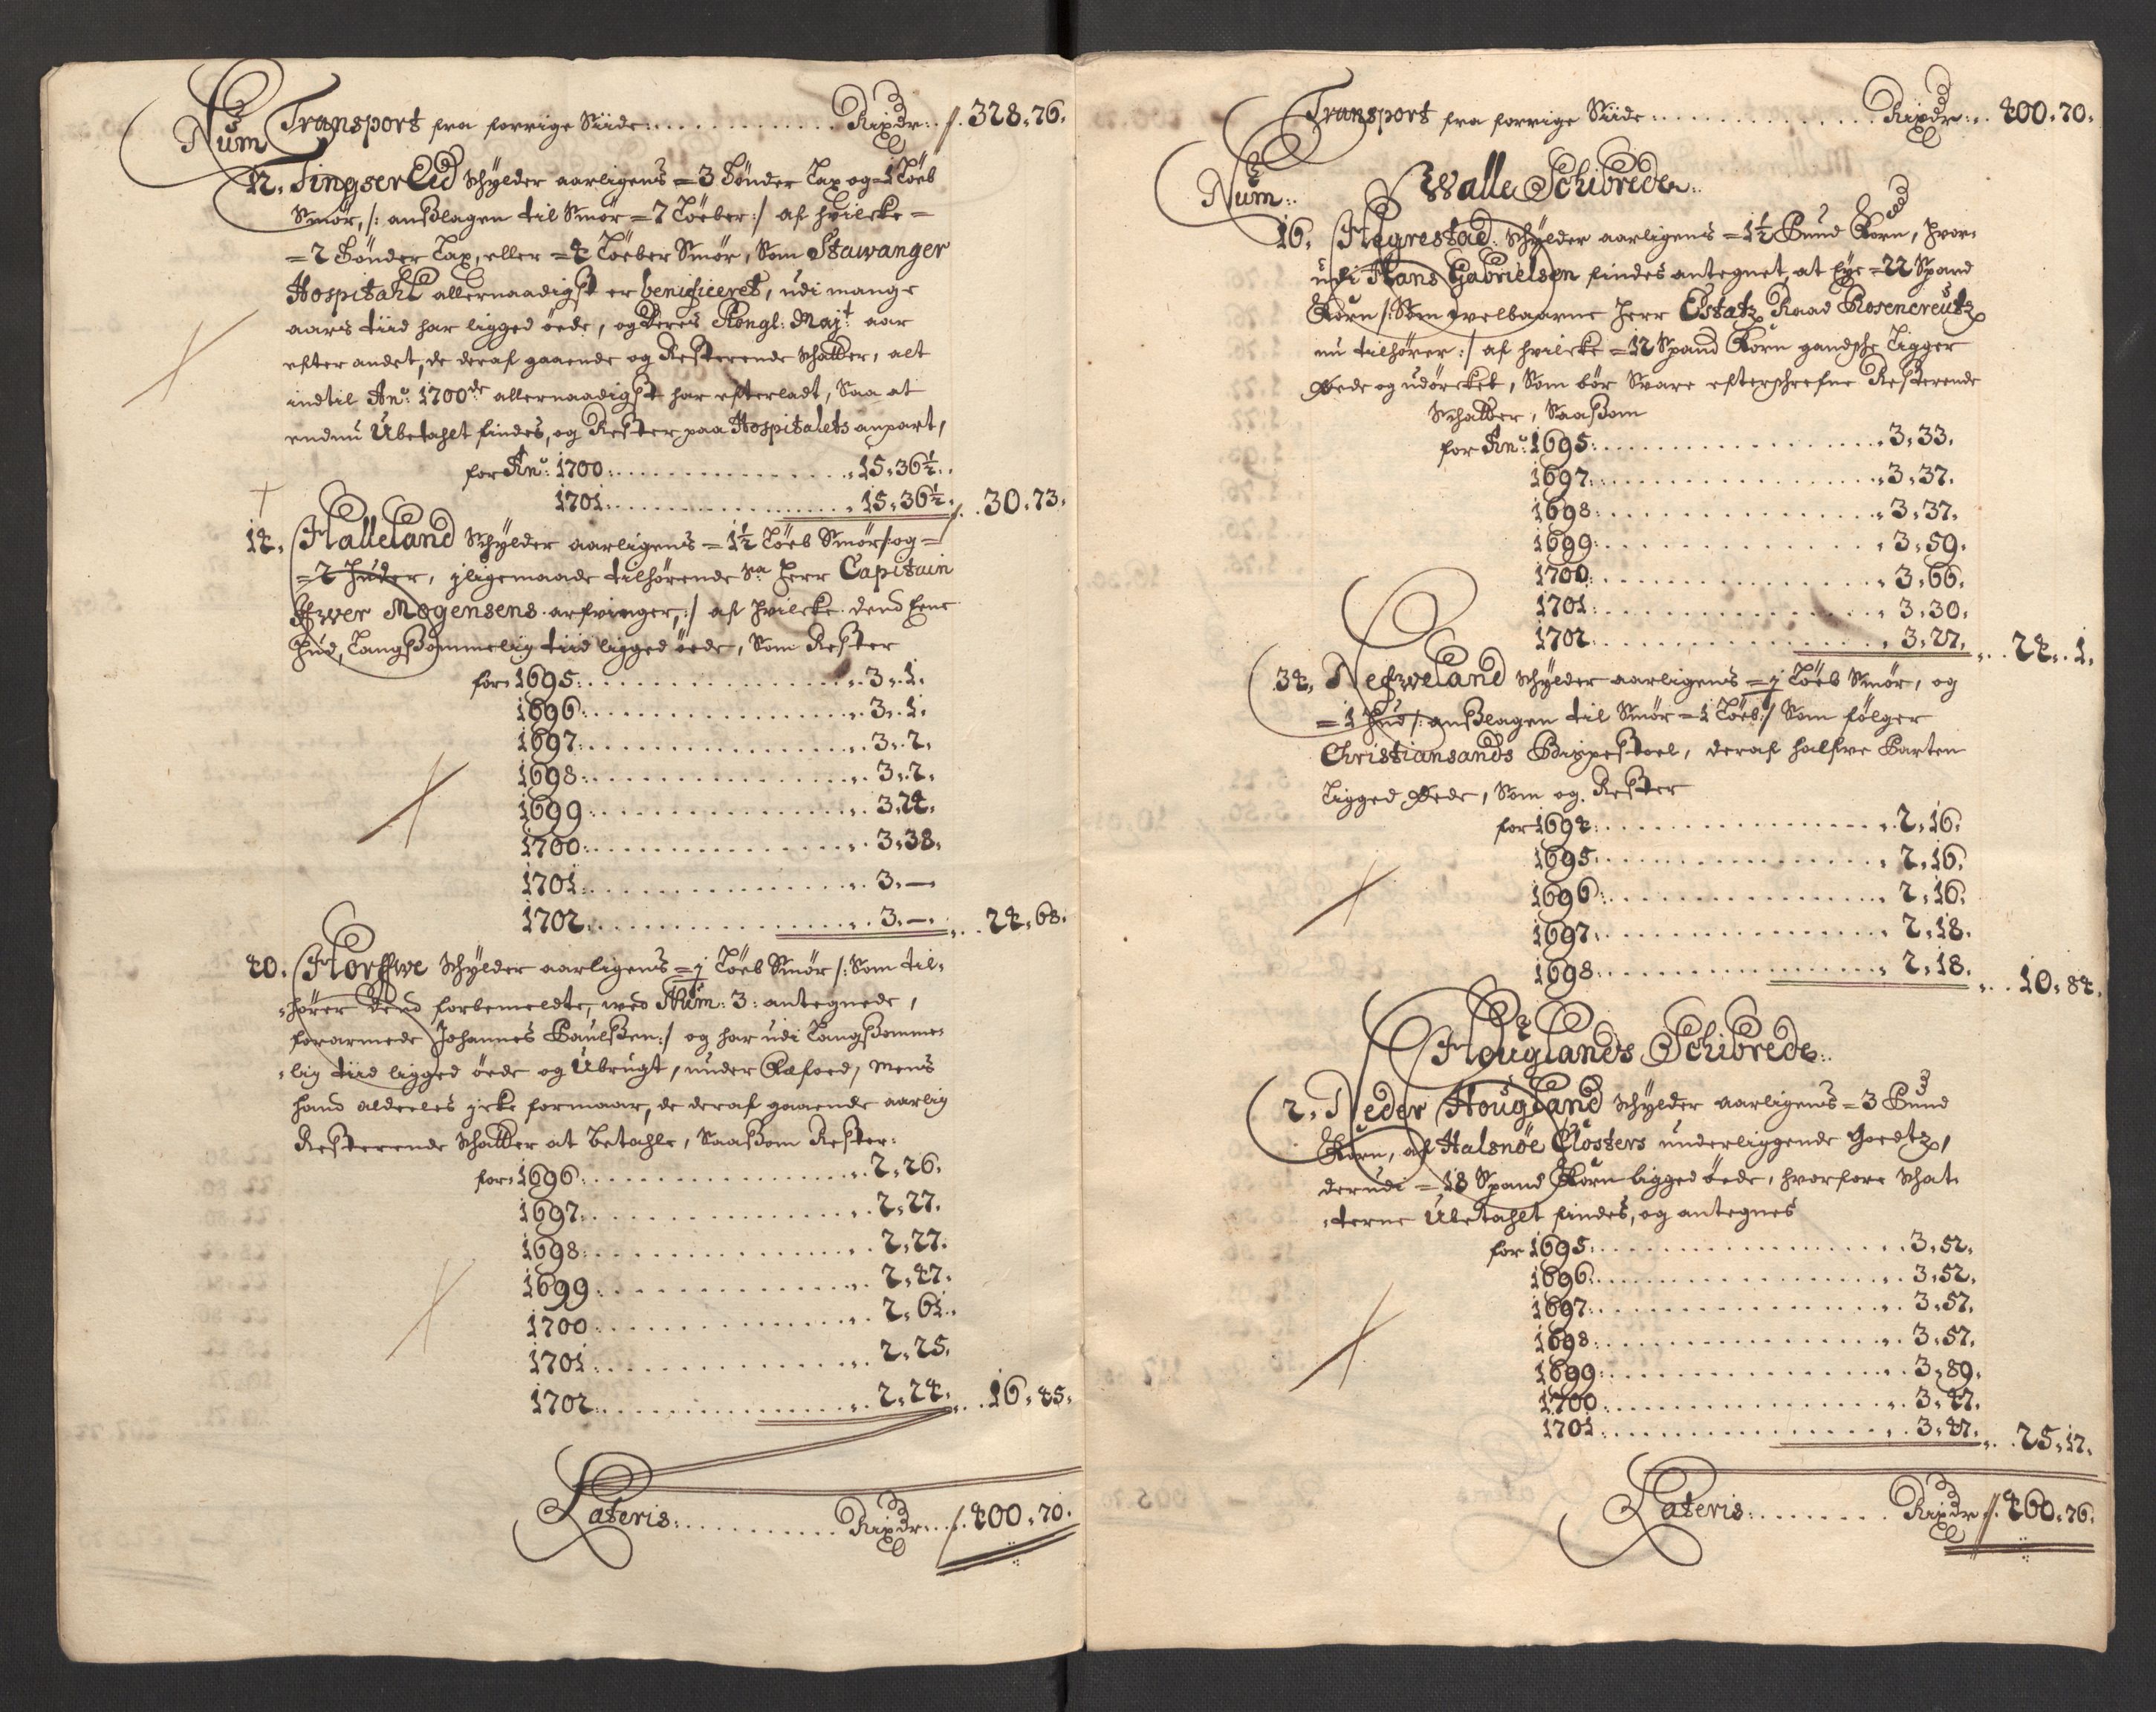 Transport fra forrige Siide: . . . . . . . . . . . . Rixdr: /. 328. 76.
Num
12. Tingser Eid schylder aarligens = 3 Tönder Lax og = 1 Löeb
Smör, /: anslagen til Smör = 7 Löeber :/ af hvilcke =
= 2 Tönder Lax, eller = 4 Löeber Smör, Som Stawanger
Hospitahl allernaadigst er benificeret, udi mange
aars tiid har ligged öede, og Deres Kongl: Maj:t aar
efter andet, de deraf gaaende og Resterende Schatter, alt
indtil Ano: 1700de allernaadigst har efterladt, Saa at
endnu Ubetahlt findes, og Rester paa Hospitalets anpart,
for Ano: 1700: . . . . . . . . . . 15. 36½.
1701: . . . . . . . . . . 15. 36½. /. . 30. 73.
14. Halleland Schylder aarligens = 1½ Löeb Smör /: og =
= 2 Huder, jligemaade tilhörende Sa: Herr Capitain
Iffwer Mogensens arfvinger, :/ af hvilcke dend Eene
Hud, Langsommelig tiid ligged öede, Som Rester
for 1695: . . . . . . . . . . 3. 1.
1696: . . . . . . . . . . 3. 1.
1697: . . . . . . . . . . 3. 2.
1698: . . . . . . . . . . 3. 2.
1699: . . . . . . . . . . 3. 24.
1700: . . . . . . . . . . 3. 38.
1701: . . . . . . . . . . 3. —
1702: . . . . . . . . . . 3. —. . . 24. 68.
40. Horffwe Schylder aarligens = j Löeb Smör /: Som til=
=hörer dend forbemeldte, wed Num: 3: antegnede,
forarmede Johannes Paulsen :/ og har udi Langsomme=
=lig tiid ligged öede og Ubrugt, under Kafoed, mens
hand aldeeles jcke formaar, de deraf gaaende aarlig
Resterende Schatter at betahle, Saasom Rester:
for 1696: . . . . . . . . . . 2. 26.
1697: . . . . . . . . . . 2. 27.
1698: . . . . . . . . . . 2. 27.
1699: . . . . . . . . . . 2. 47.
1700: . . . . . . . . . . 2. 61.
1701: . . . . . . . . . . 2. 25.
1702: . . . . . . . . . . 2. 24. . . 16. 45.
Lateris: . . . . . . . . . . Rixdr: . /. 400. 70.
Transport fra forrige Siide: . . . . . . . . . . . . Rixdr: . . 400. 70.
Num: Walle Schibrede:
16. Hegrestad: Schylder aarligens = 1½ Pund Korn, hvor=
udi Hans Gabrielsen findes antegnet, at Eye = 22 Spand
Korn /: Som welbaarne Herr Estatz Raad Rosencreutz
nu tilhörer :/ af hvilcke = 12 Spand Korn gandsche Ligger
öede og udörcket, Som bör Svare efterschrefne Resterende
Schatter, Saasom
for Ano: 1695: . . . . . . . . . . 3. 33.
1697: . . . . . . . . . . 3. 37.
1698: . . . . . . . . . . 3. 37.
1699: . . . . . . . . . . 3. 59.
1700: . . . . . . . . . . 3. 66.
1701: . . . . . . . . . . 3. 30.
1702: . . . . . . . . . . 3. 27. . . 24. . 1.
34. Nefweland Schylder aarligens = j Löeb Smör, og
= 1 Hud /: anslagen til Smör = 1 Löeb :/ Som fölger
Christiansands Bispestoel, deraf halfwe Parten
Ligged Öede, Som og Rester
for 1694: . . . . . . . . . . 2. 16.
1695: . . . . . . . . . . 2. 16.
1696: . . . . . . . . . . 2. 16.
1697: . . . . . . . . . . 2. 18.
1698: . . . . . . . . . . 2. 18. . . 10. 84.
Houglands Schibrede:
2. Neder Hougland Schylder aarligens = 3 Pund
Korn, af Halsnöe Closters underliggende Goedtz,
derudi = 18 Spand Korn ligged öede, hvorfore Schat=
=terne Ubetahlt findes, og antegnes
for 1695: . . . . . . . . . . 3. 52.
1696: . . . . . . . . . . 3. 52.
1697: . . . . . . . . . . 3. 57.
1698: . . . . . . . . . . 3. 57.
1699: . . . . . . . . . . 3. 89.
1700: . . . . . . . . . . 3. 47.
1701: . . . . . . . . . . 3. 47. . . 25. 17.
Lateris: . . . . . . . . Rixdr /. 460. 76.